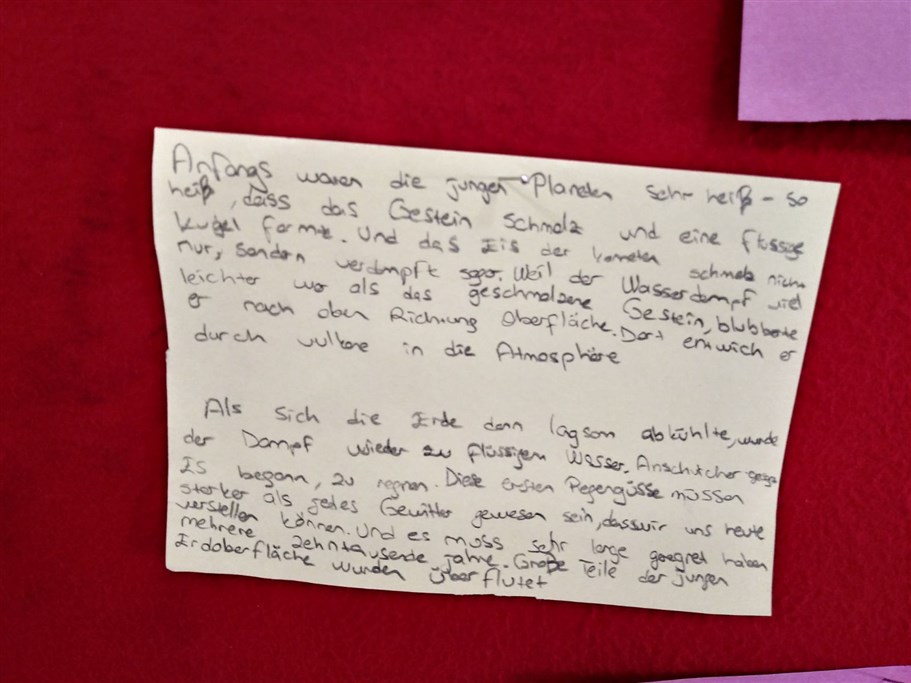 Anfangs waren die jungen Planeten sehr heiß - so
heiß, dass das Gestein schmolz und eine flüssige
Kugel formte. Und das Eis der kometen schmolz nicht
nur, sondern verdampft sogar. Weil der Wasserdampf viel
leichter war als das geschmolzene Gestein, blubberte
er nach oben Richtung Oberfläche. Dort entwich er
durch vulkane in die Atmosphäre
Als sich die Erde dann lagsam abkühlte, wurde
der Dampf wieder zu flüssigem Wasser. Anschicher
Es begann, zu regnen. Diese ersten Regengüsse müssen
starker als jedes Gewitter gewesen sein, dass wir uns heute
verstellen können. Und es muss sehr lange geregnet haben
mehrere zehntausende jahre. Große Teile der jungen
Erdoberfläche wurden überflutet